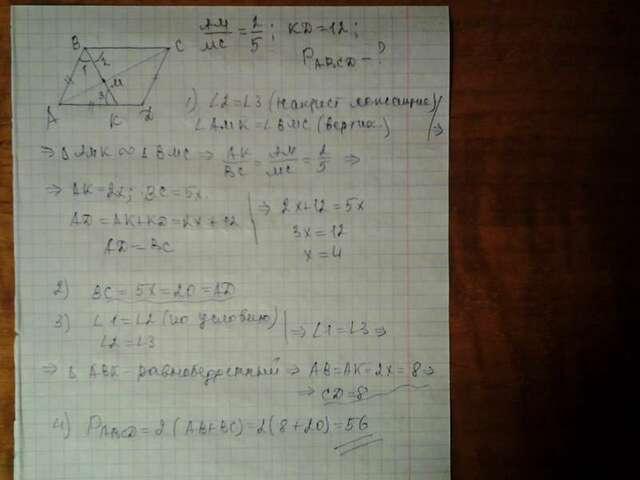 AM/MC = 2/5 ; KD = 12 ;
P ABCD - ?
B C
1 2
M
3
A K D
1) ∠2 = ∠3 (накрест лежащие)
∠AMK = ∠BMC (вертик.) ⇒
⇒ Δ AMK ∞ Δ BMC ⇒ AK/BC = AM/MC = 2/5 ⇒
⇒ AK = 2x ; BC = 5x
AD = AK + KD = 2x + 12
AD = BC
⇒ 2x + 12 = 5x
3x = 12
x = 4
2) BC = 5x = 20 = AD
3) ∠1 = ∠2 (по условию)
∠2 = ∠3
⇒ ∠1 = ∠3 ⇒
⇒ Δ ABK - равнобедренный ⇒ AB = AK = 2x = 8 ⇒
⇒ CD = 8
4) P ABCD = 2 (AB + BC) = 2 (8 + 20) = 56